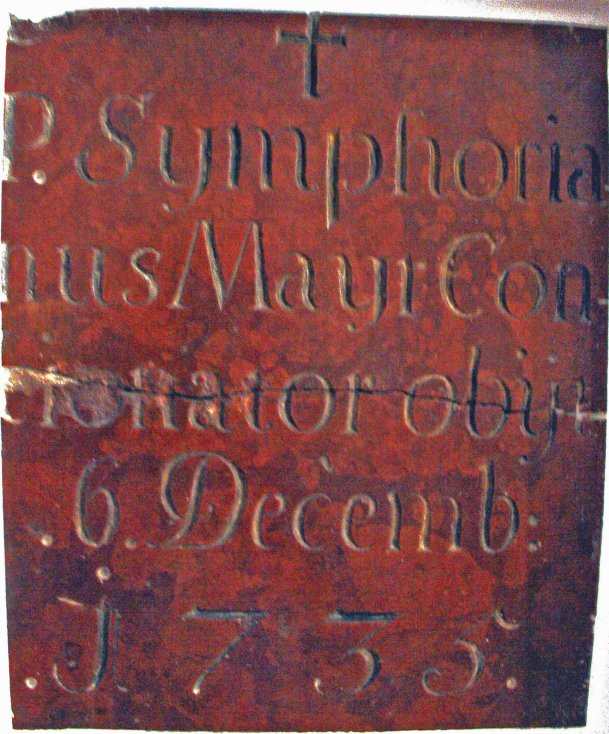 P. Symphoria
nus Mayr Con-
cionator obijt
6. Decemb:
. 1735.